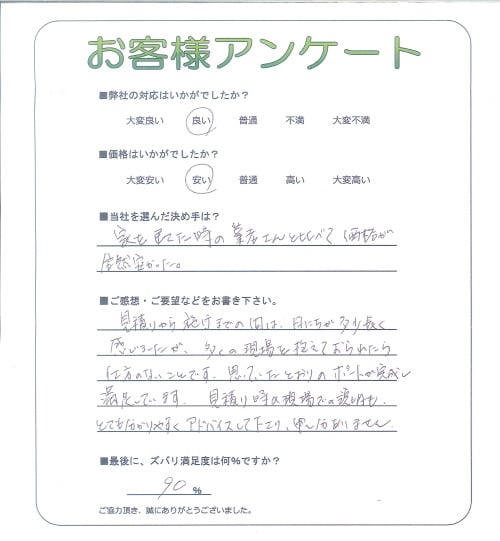 お客様アンケート
■弊社の対応はいかがでしたか？
大変良い 良い 普通 不満 大変不満
■価格はいかがでしたか？
大変安い 安い 普通 高い 大変高い
■当社を選んだ決め手は？
家を建てた時の業者さんと比べて価格が
全然安かった。
■ご感想・ご要望などをお書き下さい。
見積りから施行までの間は、日にちが多少長く
感じましたが、多くの現場を抱えておられたら
仕方のないことです。思っていたとおりのポートが完成し
満足しています。見積り時の現場での説明も、
とても分かりやすくアドバイスして下さり、申し分ありません。
■最後に、ズバリ満足度は何％ですか？
90 ％
ご協力頂き、誠にありがとうございました。